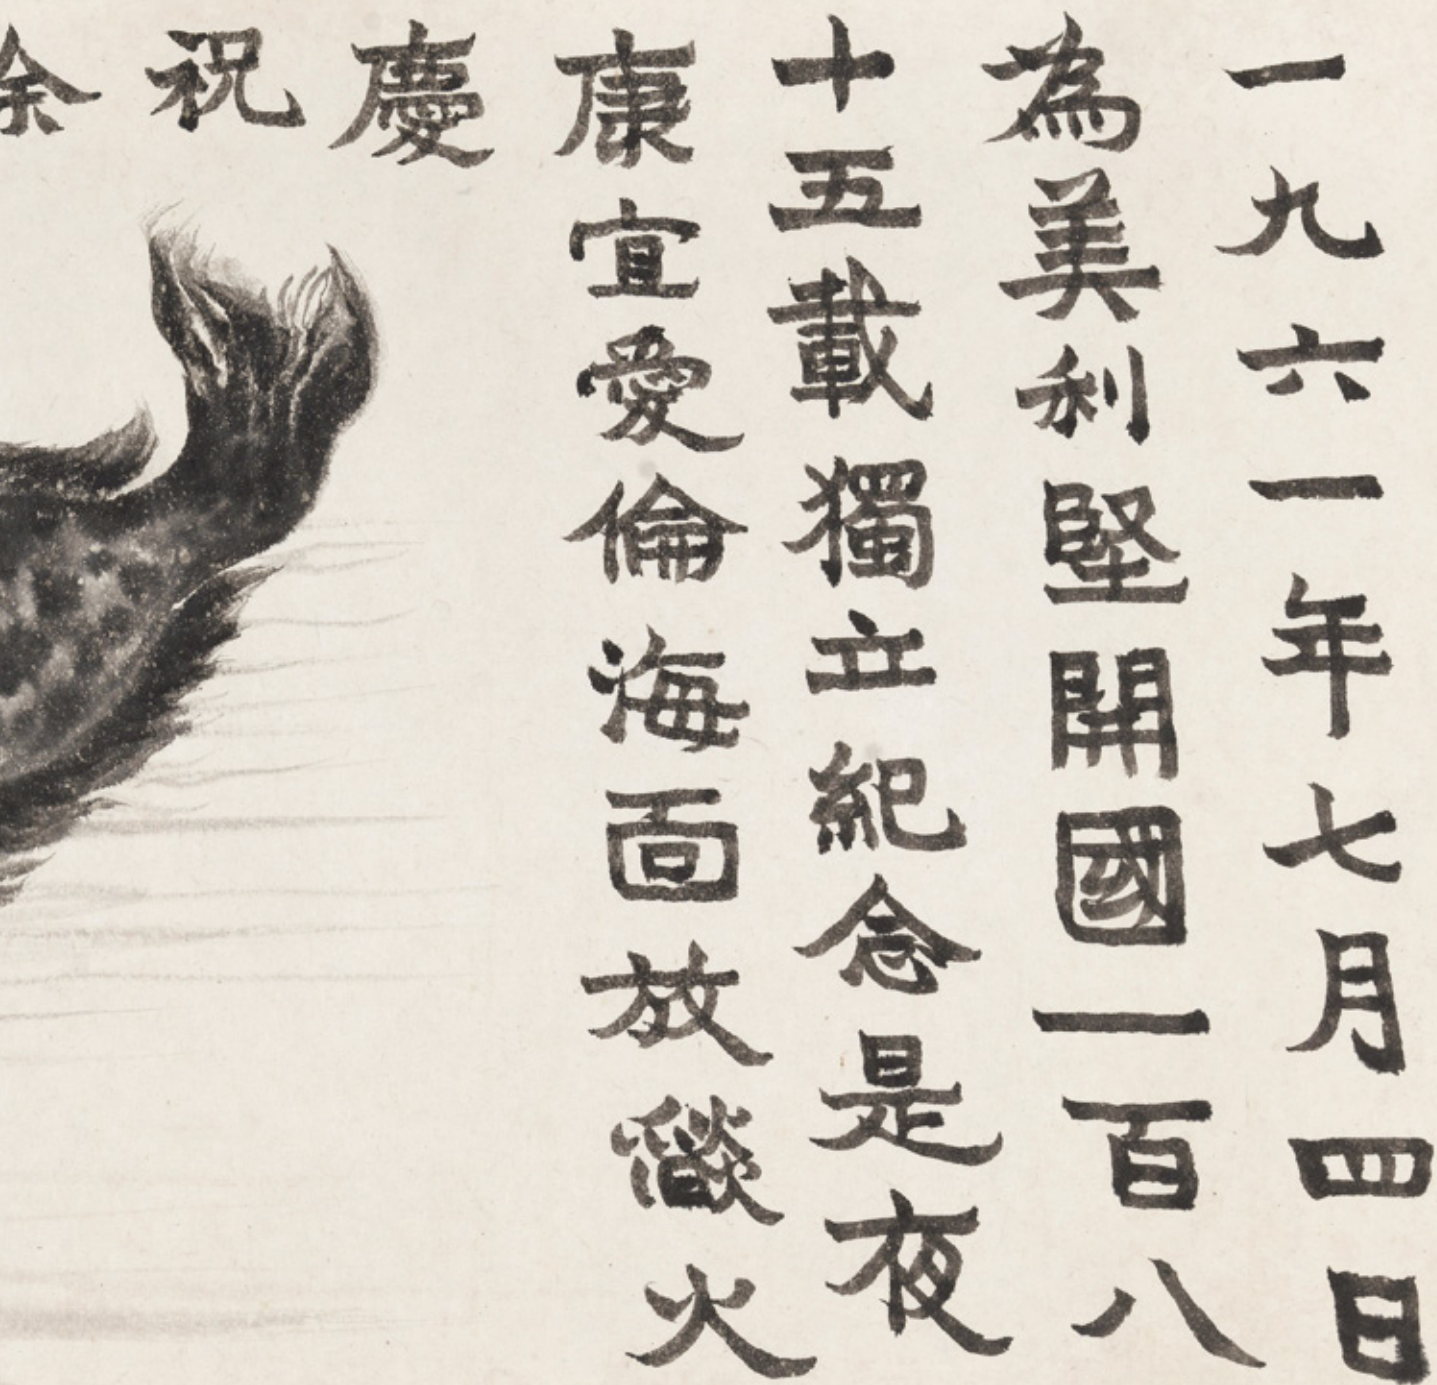 一九六一年七月四日
為美利堅開國一百八
十五載獨立紀念是夜
康宜愛倫海面放燄火
慶
祝
余